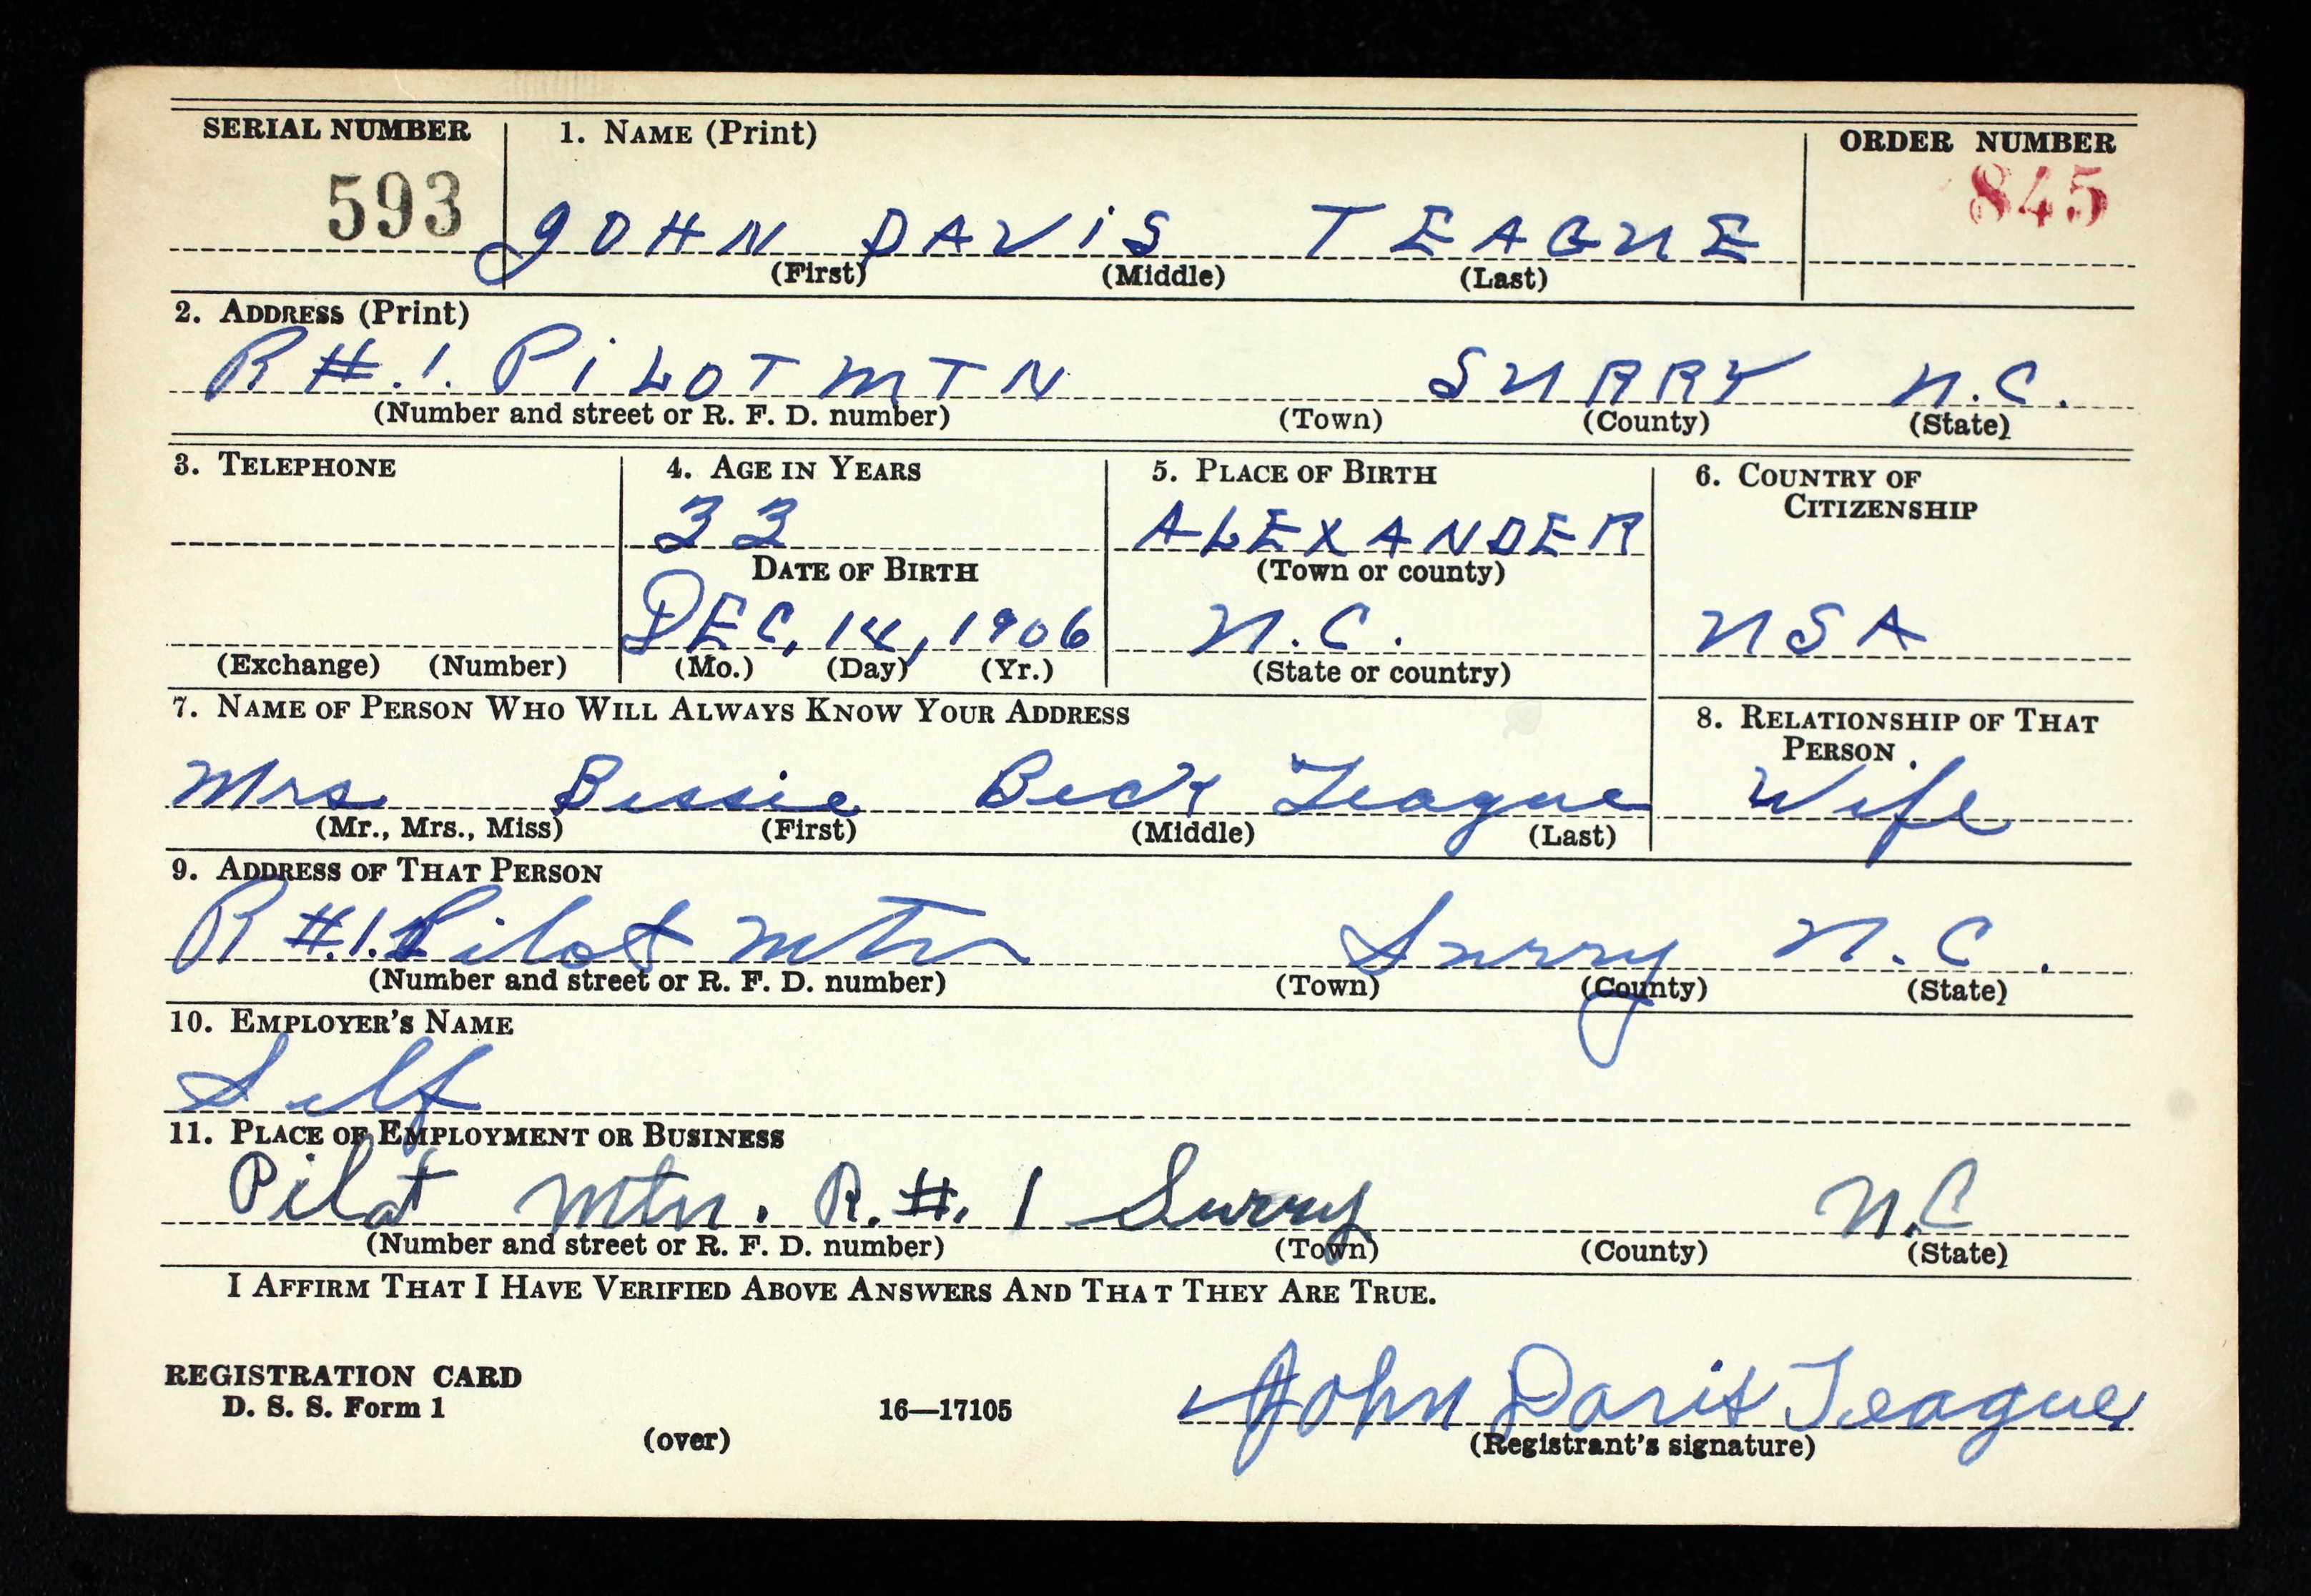 SERIAL NUMBER 1. NAME (Print) ORDER NUMBER
593 JOHN DAVIS TEAGUE 845
(First) (Middle) (Last)
2. ADDRESS (Print)
R #.1. PiLOT MTN SURRY N.C.
(Number and street or R. F. D. number) (Town) (County) (State)
3. TELEPHONE 4. AGE IN YEARS 5. PLACE OF BIRTH 6. COUNTRY OF CITIZENSHIP
33 ALEXANDER
DATE OF BIRTH (Town or county)
DEC, 14, 1906 N.C. USA
(Exchange) (Number) (Mo.) (Day) (Yr.) (State or country)
7. NAME OF PERSON WHO WILL ALWAYS KNOW YOUR ADDRESS 8. RELATIONSHIP OF THAT PERSON
Mrs Bessie Beck Teague Wife
(Mr., Mrs., Miss) (First) (Middle) (Last)
9. ADDRESS OF THAT PERSON
R #.1. Pilot Mtn Surry N.C.
(Number and street or R. F. D. number) (Town) (County) (State)
10. EMPLOYER'S NAME
Self
11. PLACE OF EMPLOYMENT OR BUSINESS
Pilot Mtn. R.#. 1 Surry N.C
(Number and street or R. F. D. number) (Town) (County) (State)
I AFFIRM THAT I HAVE VERIFIED ABOVE ANSWERS AND THAT THEY ARE TRUE.
REGISTRATION CARD
D. S. S. Form 1 16—17105 John Davis Teague
(over) (Registrant's signature)